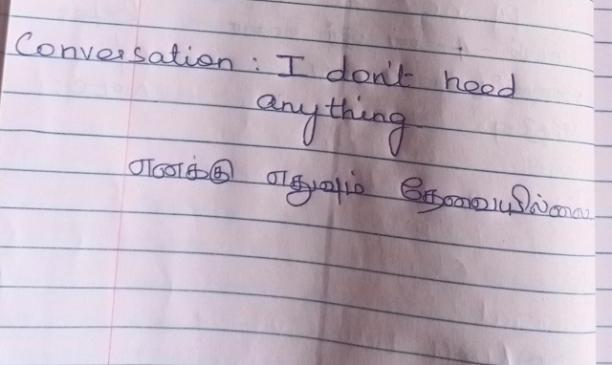 Conversation : I don't need
anything
எனக்கு எதுவும் தேவையில்லை